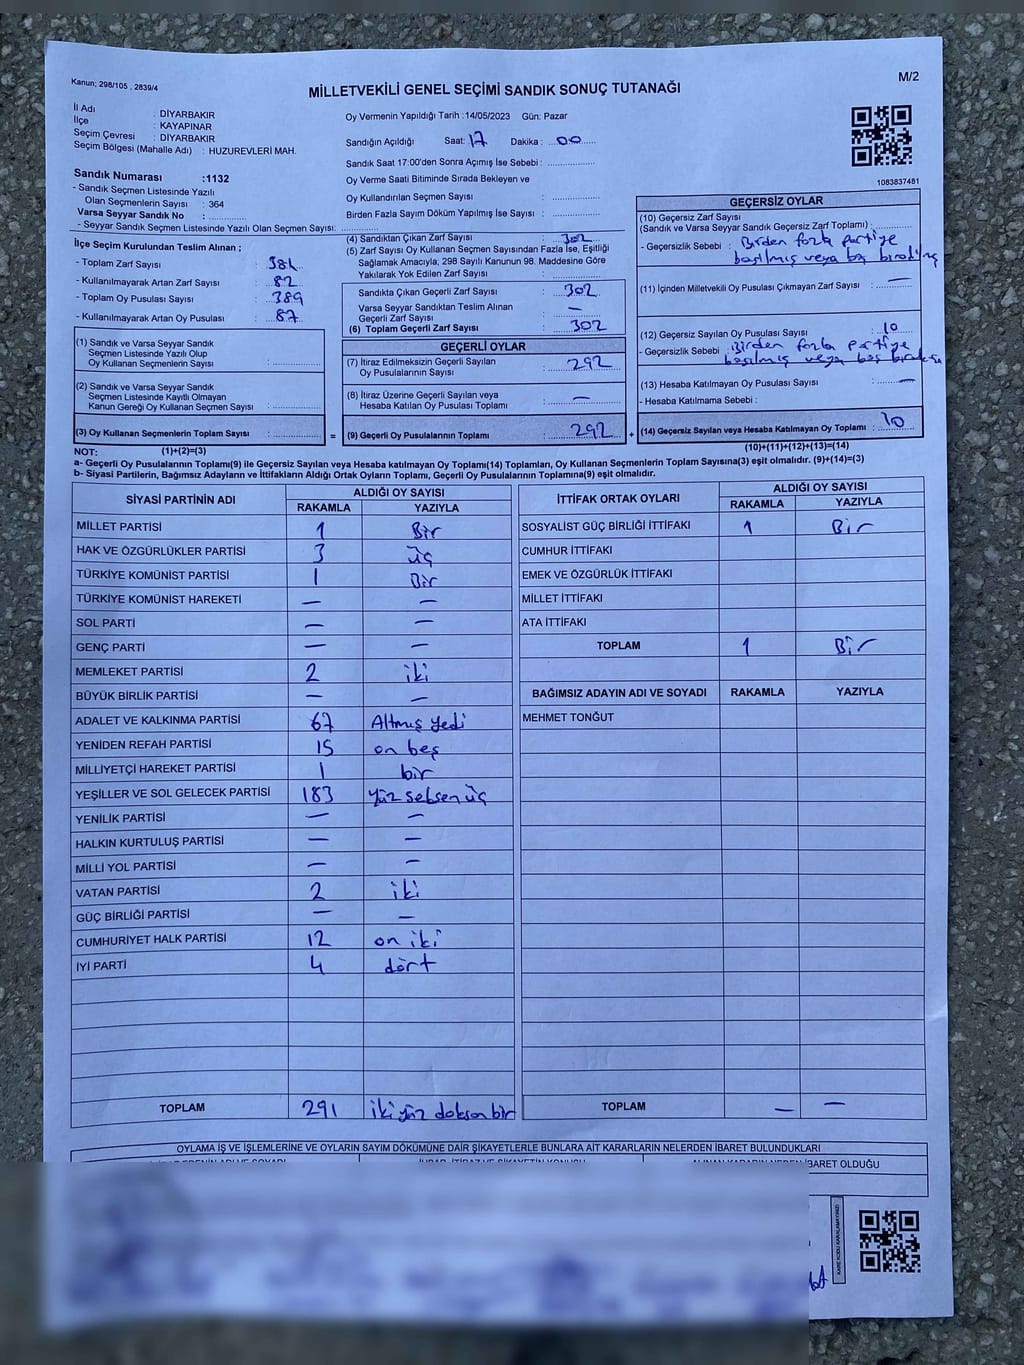 Kanun; 298/105 , 2839/4
MİLLETVEKİLİ GENEL SEÇİMİ SANDIK SONUÇ TUTANAĞI
M/2
İl Adı : DİYARBAKIR
İlçe : KAYAPINAR
Seçim Çevresi : DİYARBAKIR
Seçim Bölgesi (Mahalle Adı) : HUZUREVLERİ MAH.
Sandık Numarası :1132
- Sandık Seçmen Listesinde Yazılı
Olan Seçmenlerin Sayısı : 364
Varsa Seyyar Sandık No :
- Seyyar Sandık Seçmen Listesinde Yazılı Olan Seçmen Sayısı:
Oy Vermenin Yapıldığı Tarih :14/05/2023 Gün: Pazar
Sandığın Açıldığı Saat: 17 Dakika : 00
Sandık Saat 17:00'den Sonra Açımış İse Sebebi :
Oy Verme Saati Bitiminde Sırada Bekleyen ve
Oy Kullandırılan Seçmen Sayısı :
Birden Fazla Sayım Döküm Yapılmış İse Sayısı :
1083837481
İlçe Seçim Kurulundan Teslim Alınan ;
- Toplam Zarf Sayısı :
- Kullanılmayarak Artan Zarf Sayısı : 82
- Toplam Oy Pusulası Sayısı : 389
- Kullanılmayarak Artan Oy Pusulası : 87
(1) Sandık ve Varsa Seyyar Sandık
Seçmen Listesinde Yazılı Olup
Oy Kullanan Seçmenlerin Sayısı :
(2) Sandık ve Varsa Seyyar Sandık
Seçmen Listesinde Kayıtlı Olmayan
Kanun Gereği Oy Kullanan Seçmen Sayısı :
(3) Oy Kullanan Seçmenlerin Toplam Sayısı :
=
(4) Sandıktan Çıkan Zarf Sayısı : 302
(5) Zarf Sayısı Oy Kullanan Seçmen Sayısından Fazla İse, Eşitliği
Sağlamak Amacıyla, 298 Sayılı Kanunun 98. Maddesine Göre
Yakılarak Yok Edilen Zarf Sayısı :
Sandıkta Çıkan Geçerli Zarf Sayısı : 302
Varsa Seyyar Sandıktan Teslim Alınan
Geçerli Zarf Sayısı : —
(6) Toplam Geçerli Zarf Sayısı : 302
GEÇERLİ OYLAR
(7) İtiraz Edilmeksizin Geçerli Sayılan
Oy Pusulalarının Sayısı : 292
(8) İtiraz Üzerine Geçerli Sayılan veya
Hesaba Katılan Oy Pusulası Toplamı : —
(9) Geçerli Oy Pusulalarının Toplamı : 292
+
GEÇERSİZ OYLAR
(10) Geçersiz Zarf Sayısı
(Sandık ve Varsa Seyyar Sandık Geçersiz Zarf Toplamı) :
- Geçersizlik Sebebi : Birden fazla partiye
basılmış veya boş
(11) İçinden Milletvekili Oy Pusulası Çıkmayan Zarf Sayısı : —
(12) Geçersiz Sayılan Oy Pusulası Sayısı : 10
- Geçersizlik Sebebi : Birden fazla partiye
basılmış veya boş
(13) Hesaba Katılmayan Oy Pusulası Sayısı : —
- Hesaba Katılmama Sebebi :
(14) Geçersiz Sayılan veya Hesaba Katılmayan Oy Toplamı : 10
NOT: (1)+(2)=(3)
(10)+(11)+(12)+(13)=(14)
a- Geçerli Oy Pusulalarının Toplamı(9) ile Geçersiz Sayılan veya Hesaba katılmayan Oy Toplamı(14) Toplamları, Oy Kullanan Seçmenlerin Toplam Sayısına(3) eşit olmalıdır. (9)+(14)=(3)
b- Siyasi Partilerin, Bağımsız Adayların ve İttifakların Aldığı Ortak Oyların Toplamı, Geçerli Oy Pusulalarının Toplamına(9) eşit olmalıdır.
SİYASİ PARTİNİN ADI ALDIĞI OY SAYISI
RAKAMLA YAZIYLA
MİLLET PARTİSİ 1 Bir
HAK VE ÖZGÜRLÜKLER PARTİSİ 3 üç
TÜRKİYE KOMÜNİST PARTİSİ 1 Bir
TÜRKİYE KOMÜNİST HAREKETİ — —
SOL PARTİ — —
GENÇ PARTİ — —
MEMLEKET PARTİSİ 2 iki
BÜYÜK BİRLİK PARTİSİ — —
ADALET VE KALKINMA PARTİSİ 67 Altmış yedi
YENİDEN REFAH PARTİSİ 15 on beş
MİLLİYETÇİ HAREKET PARTİSİ 1 bir
YEŞİLLER VE SOL GELECEK PARTİSİ 183 yüz seksen üç
YENİLİK PARTİSİ — —
HALKIN KURTULUŞ PARTİSİ — —
MİLLİ YOL PARTİSİ — —
VATAN PARTİSİ 2 iki
GÜÇ BİRLİĞİ PARTİSİ — —
CUMHURİYET HALK PARTİSİ 12 on iki
İYİ PARTİ 4 dört
TOPLAM 291 iki yüz doksan bir
İTTİFAK ORTAK OYLARI ALDIĞI OY SAYISI
RAKAMLA YAZIYLA
SOSYALİST GÜÇ BİRLİĞİ İTTİFAKI 1 Bir
CUMHUR İTTİFAKI
EMEK VE ÖZGÜRLÜK İTTİFAKI
MİLLET İTTİFAKI
ATA İTTİFAKI
TOPLAM 1 Bir
BAĞIMSIZ ADAYIN ADI VE SOYADI RAKAMLA YAZIYLA
MEHMET TONĞUT
TOPLAM — —
OYLAMA İŞ VE İŞLEMLERİNE VE OYLARIN SAYIM DÖKÜMÜNE DAİR ŞİKAYETLERLE BUNLARA AİT KARARLARIN NELERDEN İBARET BULUNDUKLARI
İBARET OLDUĞU